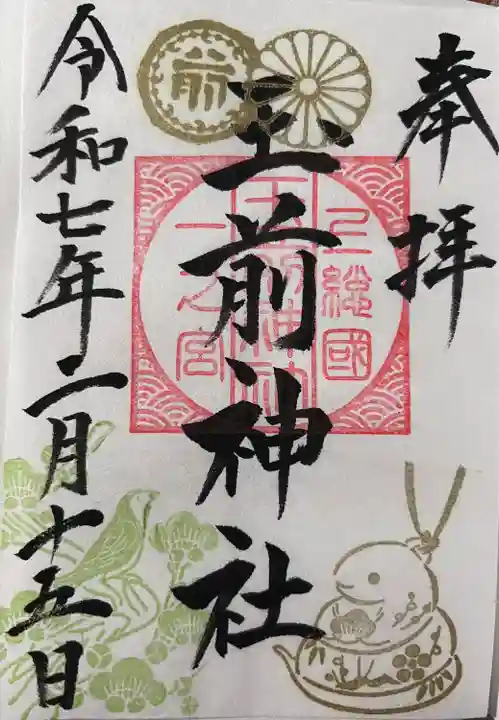 奉拝
前
上総國
玉前神社
一之宮
玉前神社
令和七年二月十五日